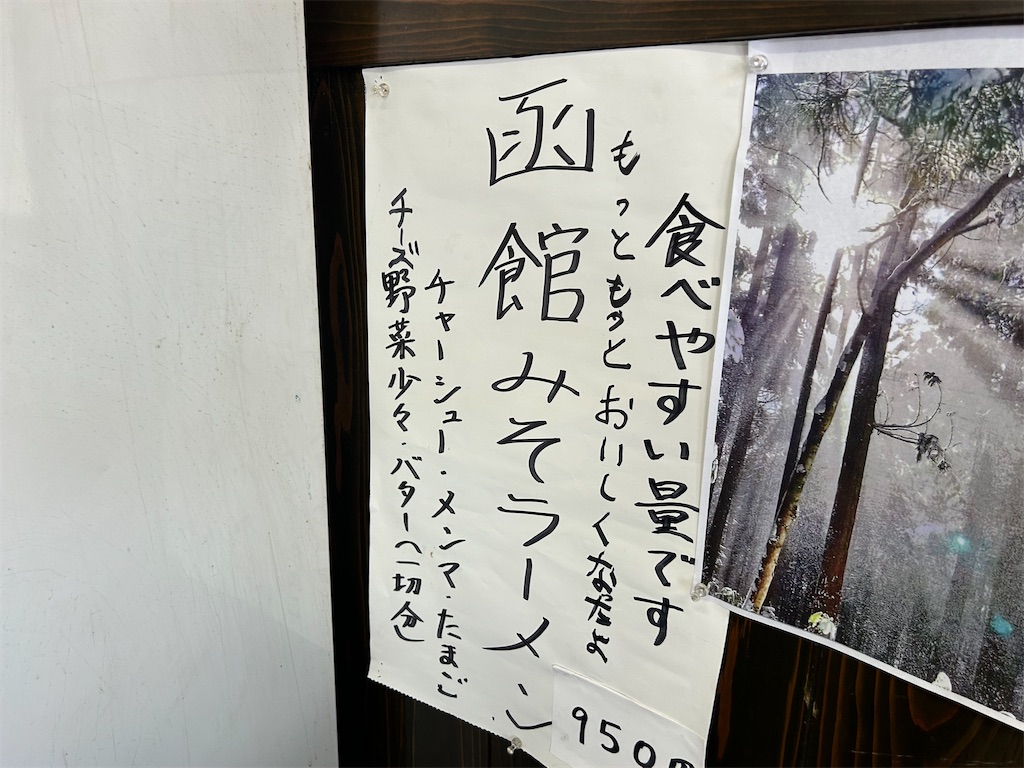 食べやすい量です
もっともっとおいしくなたよ
函館みそラーメン
チャーシュー・メンマ・たまご
チーズ野菜少々・バター(一切分)
950円